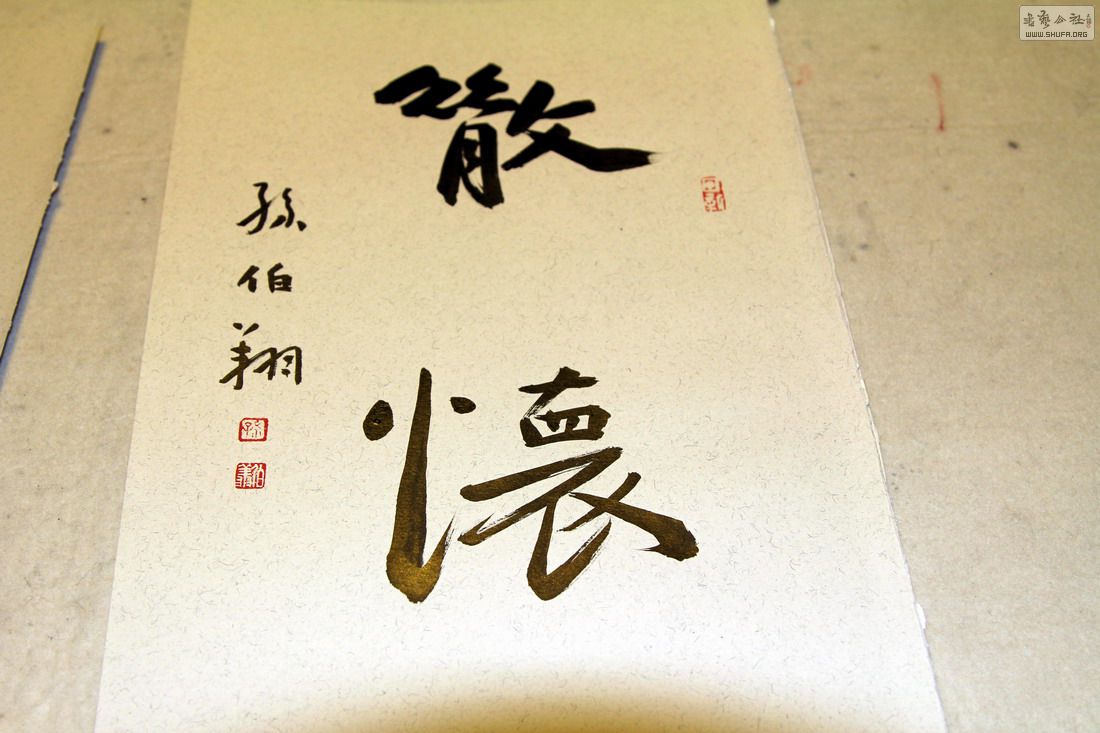 散懷
孫伯翔
WWW.SHUFA.ORG